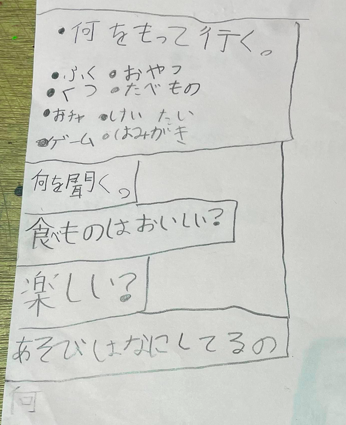 •何をもって行く。
•ふく •おやつ
•くつ •たべもの
•おチャ •けいたい
•ゲーム •はみがき
何を聞く。
食べものはおいしい?
楽しい?
あそびはなにしてるの
何